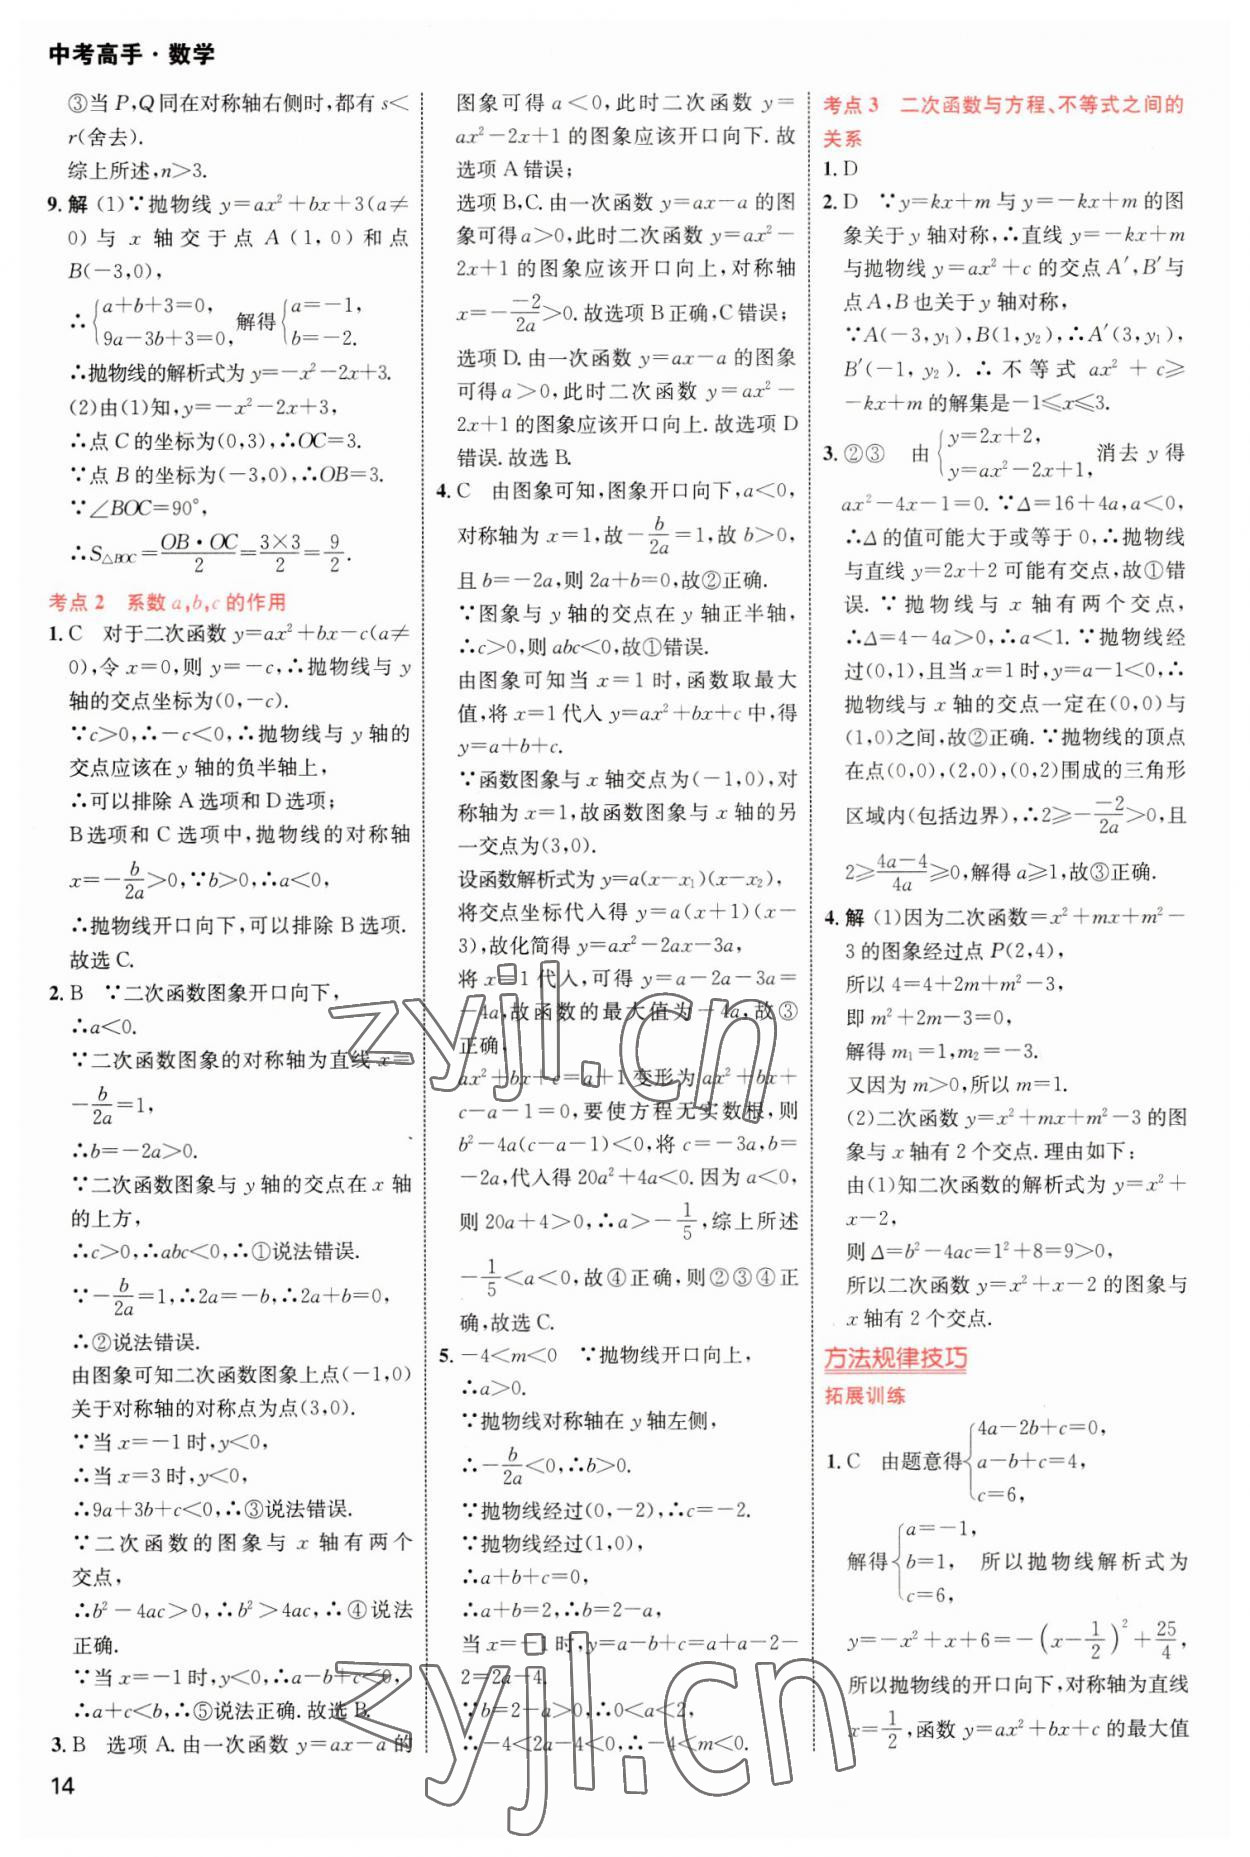 中考高手·数学
③当 P,Q 同在对称轴右侧时,都有 s<
r(舍去).
综上所述,n>3.
9. 解 (1)∵抛物线 y=ax²+bx+3(a≠
0) 与 x 轴交于点 A (1, 0) 和点
B(-3,0),
∴{a+b+3=0, 9a-3b+3=0, 解得{a=-1, b=-2.
∴抛物线的解析式为 y=-x²-2x+3.
(2)由(1)知,y=-x²-2x+3,
∴点 C 的坐标为(0,3),∴OC=3.
∵点 B 的坐标为(-3,0),∴OB=3.
∵∠BOC=90°,
∴S△BOC=OB·OC/2=3×3/2=9/2.
考点 2 系数 a,b,c 的作用
1. C 对于二次函数 y=ax²+bx-c(a≠
0),令 x=0,则 y=-c,∴抛物线与 y
轴的交点坐标为(0,-c).
∵c>0,∴-c<0,∴抛物线与 y 轴的
交点应该在 y 轴的负半轴上,
∴可以排除 A 选项和 D 选项;
B 选项和 C 选项中,抛物线的对称轴
x=-b/2a>0,∵b>0,∴a<0,
∴抛物线开口向下,可以排除 B 选项.
故选 C.
2. B ∵二次函数图象开口向下,
∴a<0.
∵二次函数图象的对称轴为直线 x=
-b/2a=1,
∴b=-2a>0.
∵二次函数图象与 y 轴的交点在 x 轴
的上方,
∴c>0,∴abc<0,∴①说法错误.
∵-b/2a=1,∴2a=-b,∴2a+b=0,
∴②说法错误.
由图象可知二次函数图象上点(-1,0)
关于对称轴的对称点为点(3,0).
∵当 x=-1 时,y<0,
∴当 x=3 时,y<0,
∴9a+3b+c<0,∴③说法错误.
∵二次函数的图象与 x 轴有两个
交点,
∴b²-4ac>0,∴b²>4ac,∴④说法
正确.
∵当 x=-1 时,y<0,∴a-b+c<0,
∴a+c<b,∴⑤说法正确.故选 B.
3. B 选项 A. 由一次函数 y=ax-a 的
14
图象可得 a<0,此时二次函数 y=
ax²-2x+1 的图象应该开口向下.故
选项 A 错误;
选项 B,C. 由一次函数 y=ax-a 的图
象可得 a>0,此时二次函数 y=ax²-
2x+1 的图象应该开口向上,对称轴
x=--2/2a>0.故选项 B 正确,C 错误;
选项 D. 由一次函数 y=ax-a 的图象
可得 a>0,此时二次函数 y=ax²-
2x+1 的图象应该开口向上.故选项 D
错误.故选 B.
4. C 由图象可知,图象开口向下,a<0,
对称轴为 x=1,故-b/2a=1,故 b>0,
且 b=-2a,则 2a+b=0,故②正确.
∵图象与 y 轴的交点在 y 轴正半轴,
∴c>0,则 abc<0,故①错误.
由图象可知当 x=1 时,函数取最大
值,将 x=1 代入 y=ax²+bx+c 中,得
y=a+b+c.
∵函数图象与 x 轴交点为(-1,0),对
称轴为 x=1,故函数图象与 x 轴的另
一交点为(3,0).
设函数解析式为 y=a(x-x₁)(x-x₂),
将交点坐标代入得 y=a(x+1)(x-
3),故化简得 y=ax²-2ax-3a,
将 x=1 代入,可得 y=a-2a-3a=
-4a,故函数的最大值为-4a,故③
正确,
ax²+bx+c=a+1 变形为 ax²+bx+
c-a-1=0,要使方程无实数根,则
b²-4a(c-a-1)<0,将 c=-3a,b=
-2a,代入得 20a²+4a<0.因为 a<0,
则 20a+4>0,∴a>-1/5,综上所述
-1/5<a<0,故④正确,则②③④正
确,故选 C.
5. -4<m<0 ∵抛物线开口向上,
∴a>0.
∵抛物线对称轴在 y 轴左侧,
∴-b/2a<0,∴b>0.
∵抛物线经过(0,-2),∴c=-2.
∵抛物线经过(1,0),
∴a+b+c=0,
∴a+b=2,∴b=2-a,
当 x=-1 时,y=a-b+c=a+a-2-
2=2a-4.
∵b=2-a>0,∴0<a<2,
∴-4<2a-4<0,∴-4<m<0.
考点 3 二次函数与方程、不等式之间的
关系
1. D
2. D ∵y=kx+m 与 y=-kx+m 的图
象关于 y 轴对称,∴直线 y=-kx+m
与抛物线 y=ax²+c 的交点 A′,B′与
点 A,B 也关于 y 轴对称,
∵A(-3,y₁),B(1,y₂),∴A′(3,y₁),
B′(-1, y₂). ∴不等式 ax²+c≥
-kx+m 的解集是-1≤x≤3.
3. ②③ 由{y=2x+2, y=ax²-2x+1, 消去 y 得
ax²-4x-1=0.∵Δ=16+4a,a<0,
∴Δ 的值可能大于或等于 0,∴抛物线
与直线 y=2x+2 可能有交点,故①错
误.∵抛物线与 x 轴有两个交点,
∴Δ=4-4a>0,∴a<1.∵抛物线经
过(0,1),且当 x=1 时,y=a-1<0,∴
抛物线与 x 轴的交点一定在(0,0)与
(1,0)之间,故②正确.∵抛物线的顶点
在点(0,0),(2,0),(0,2)围成的三角形
区域内(包括边界),∴2≥--2/2a>0,且
2≥4a-4/4a≥0,解得 a≥1,故③正确.
4. 解 (1)因为二次函数=x²+mx+m²-
3 的图象经过点 P(2,4),
所以 4=4+2m+m²-3,
即 m²+2m-3=0,
解得 m₁=1,m₂=-3.
又因为 m>0,所以 m=1.
(2)二次函数 y=x²+mx+m²-3 的图
象与 x 轴有 2 个交点.理由如下:
由(1)知二次函数的解析式为 y=x²+
x-2,
则 Δ=b²-4ac=1²+8=9>0,
所以二次函数 y=x²+x-2 的图象与
x 轴有 2 个交点.
方法规律技巧
拓展训练
1. C 由题意得{4a-2b+c=0, a-b+c=4, c=6,
解得{a=-1, b=1, c=6, 所以抛物线解析式为
y=-x²+x+6=-(x-1/2)²+25/4,
所以抛物线的开口向下,对称轴为直线
x=1/2,函数 y=ax²+bx+c 的最大值
zyjl.cn
zyjl.cn